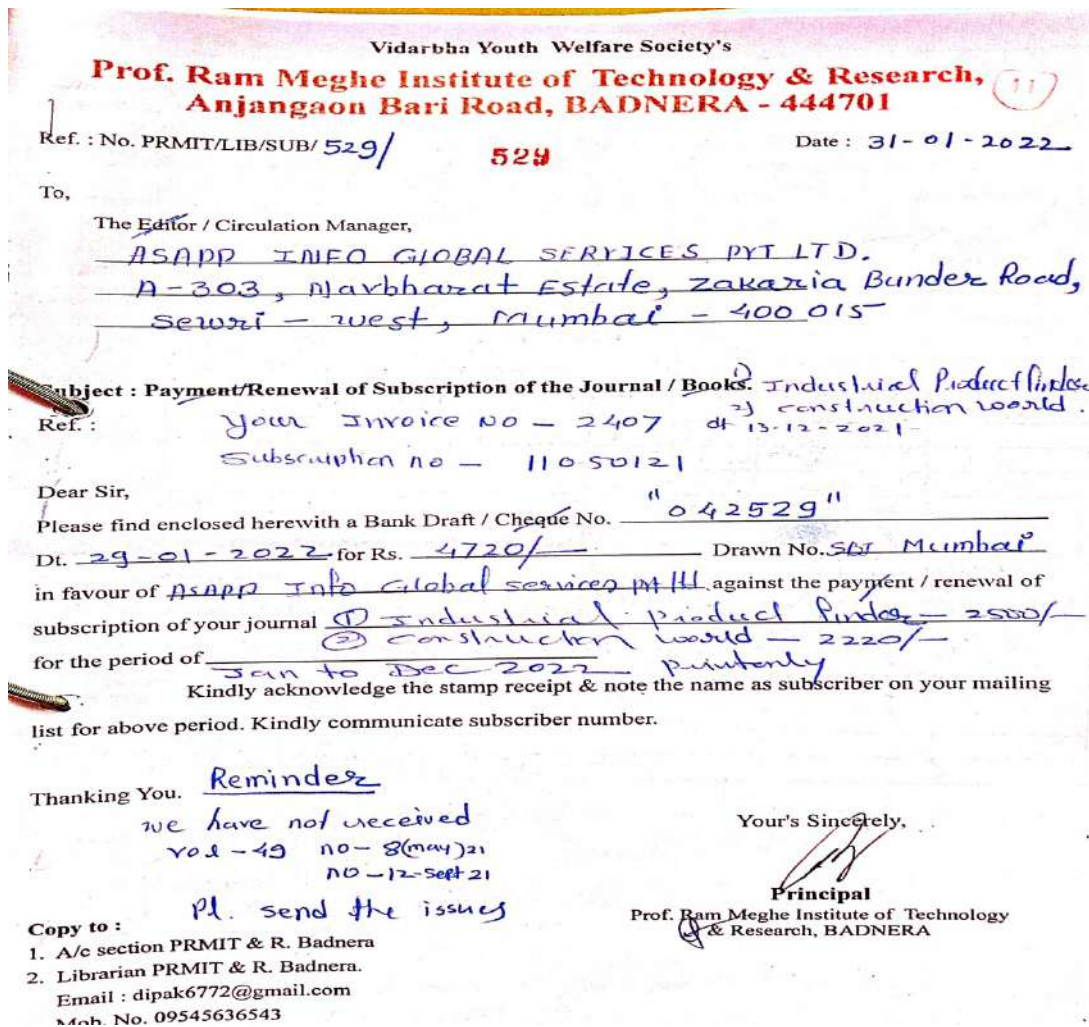 Vidarbha Youth Welfare Society's
Prof. Ram Meghe Institute of Technology & Research,
Anjangaon Bari Road, BADNERA - 444701
11
Ref. : No. PRMIT/LIB/SUB/ 529/
529
Date : 31-01-2022
To,
The Editor / Circulation Manager,
ASAPP INFO GLOBAL SERVICES PVT LTD.
A-303, Navbharat Estate, Zakaria Bunder Road,
Sewri - west, Mumbai - 400 015
Subject : Payment/Renewal of Subscription of the Journal / Books. 1) Industrial Product Finder
2) construction world.
Ref. : Your Invoice No - 2407 dt 13-12-2021-
Subscription no - 11050121
Dear Sir,
Please find enclosed herewith a Bank Draft / Cheque No. "042529"
Dt. 29-01-2022 for Rs. 4720/- Drawn No. SBI Mumbai
in favour of ASAPP Info Global services pvt ltd against the payment / renewal of
subscription of your journal ① Industrial Product Finder - 2500/-
② Construction world - 2220/-
for the period of Jan to Dec 2022 printonly
Kindly acknowledge the stamp receipt & note the name as subscriber on your mailing
list for above period. Kindly communicate subscriber number.
Thanking You. Reminder
we have not received
vol - 49 no - 8(may)21
no - 12-Sept 21
Pl. send the issues
Your's Sincerely,
Principal
Prof. Ram Meghe Institute of Technology
& Research, BADNERA
Copy to :
1. A/c section PRMIT & R. Badnera
2. Librarian PRMIT & R. Badnera.
Email : dipak6772@gmail.com
Mob. No. 09545636543